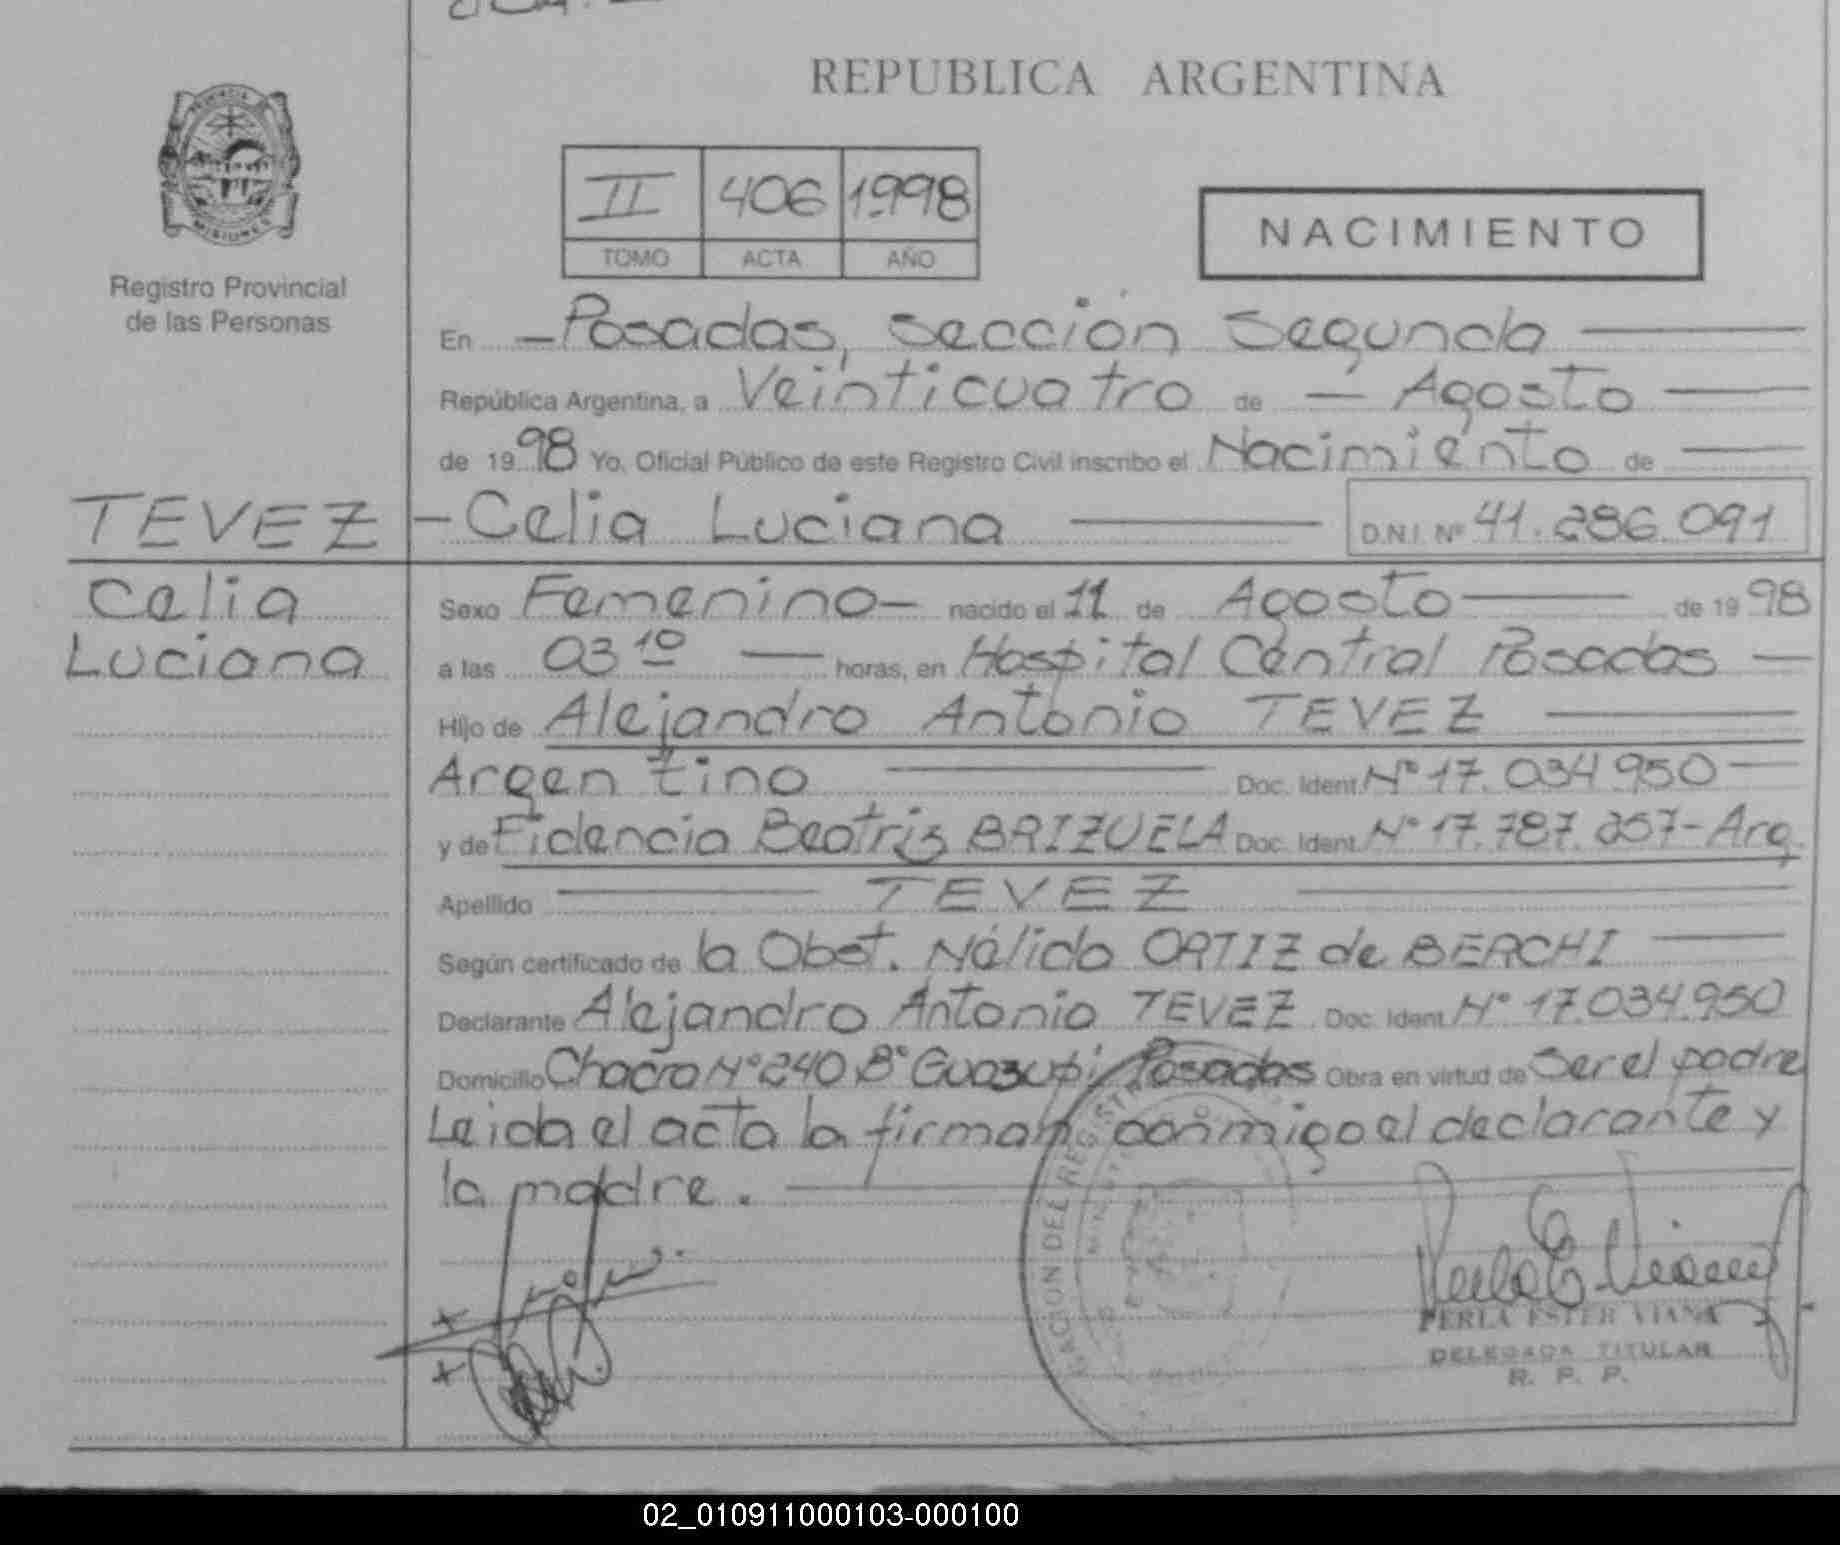 REPUBLICA ARGENTINA
PROVINCIA
MISIONES
Registro Provincial
de las Personas
II 406 1998
TOMO ACTA AÑO
NACIMIENTO
En - Posadas, Sección Segunda
República Argentina, a Veinticuatro de — Agosto
de 1998 Yo, Oficial Público de este Registro Civil inscribo el Nacimiento de
TEVEZ - Celia Luciana D.N.I. Nº 41.286.091
Celia
Luciana
Sexo Femenino - nacido el 11 de Agosto de 1998
a las 03 10 horas, en Hospital Central Posadas
Hijo de Alejandro Antonio TEVEZ
Argentino Doc. Ident. Nº 17.034.950
y de Fidencia Beatriz BRIZUELA Doc. Ident. Nº 17.787.257-Arg.
Apellido TEVEZ
Según certificado de la Obst. Nélida ORTIZ de BERCHI
Declarante Alejandro Antonio TEVEZ Doc. Ident. Nº 17.034.950
Domicilio Chacra Nº 240 Bº Guazupi Posadas Obra en virtud de Ser el padre
Leida el acta la firman conmigo el declarante y
la madre.
PERLA ESTER VIANA
DELEGADA TITULAR
R. P. P.
02_010911000103-000100